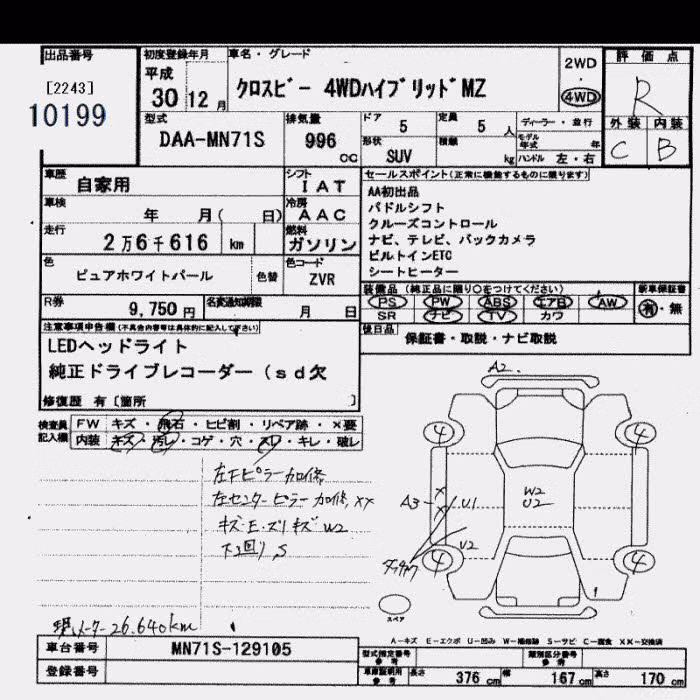 出品番号
[2243]
10199
初度登録年月
平成
30 12月
車名・グレード
クロスビー 4WDハイブリッドMZ
2WD
・
4WD
評価点
R
外装 内装
C B
型式
DAA-MN71S
排気量
996
cc
ドア
5
定員
5 人
形状
SUV
積載
kg
ディーラー・並行
モデル年式 年
ハンドル 左・右
車歴
自家用
シフト
IAT
車検
年 月( 日)
冷房
AAC
走行
2万6千616 km
燃料
ガソリン
色
ピュアホワイトパール
色替
色コード
ZVR
R券
9,750円
名変通知期限
月 日
セールスポイント(正常に機能するものに限ります)
AA初出品
パドルシフト
クルーズコントロール
ナビ、テレビ、バックカメラ
ビルトインETC
シートヒーター
装備品(純正品に限り○をつけてください)
PS PW ABS エアB AW
SR ナビ TV カワ
新車保証書
有・無
後日品
保証書・取説・ナビ取説
注意事項申告欄(不具合内容等は具体的に記入して下さい)
LEDヘッドライト
純正ドライブレコーダー(sd欠
修復歴 有〔箇所 〕
検査員記入欄
FW キズ・飛石・ヒビ割・リペア跡・×要
内装 キズ・汚レ・コゲ・穴・スレ・キレ・破レ
左下ピラー加修
左センターピラー加修,XX
キズ・E・ズリキズ W2
下回りS
現メーター26.640km
A2
4 4
A3 X X U1
W2
U2
U2
4 4
スペア
A-キズ E-エクボ U-凹み W-補修跡 S-サビ C-腐食 XX-交換済
車台番号
MN71S-129105
登録番号
型式指定番号
参考
類別区分番号
参考
車庫証明用
参考
長さ 376 cm 幅 167 cm 高さ 170 cm